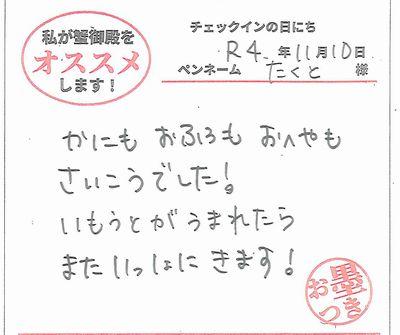 私が蟹御殿を
オススメ
します！
チェックインの日にち
R4.年11月10日
ペンネーム たくと 様
かにも おふろも おへやも
さいこうでした!
いもうとがうまれたら
またいっしょにきます!
お墨つき